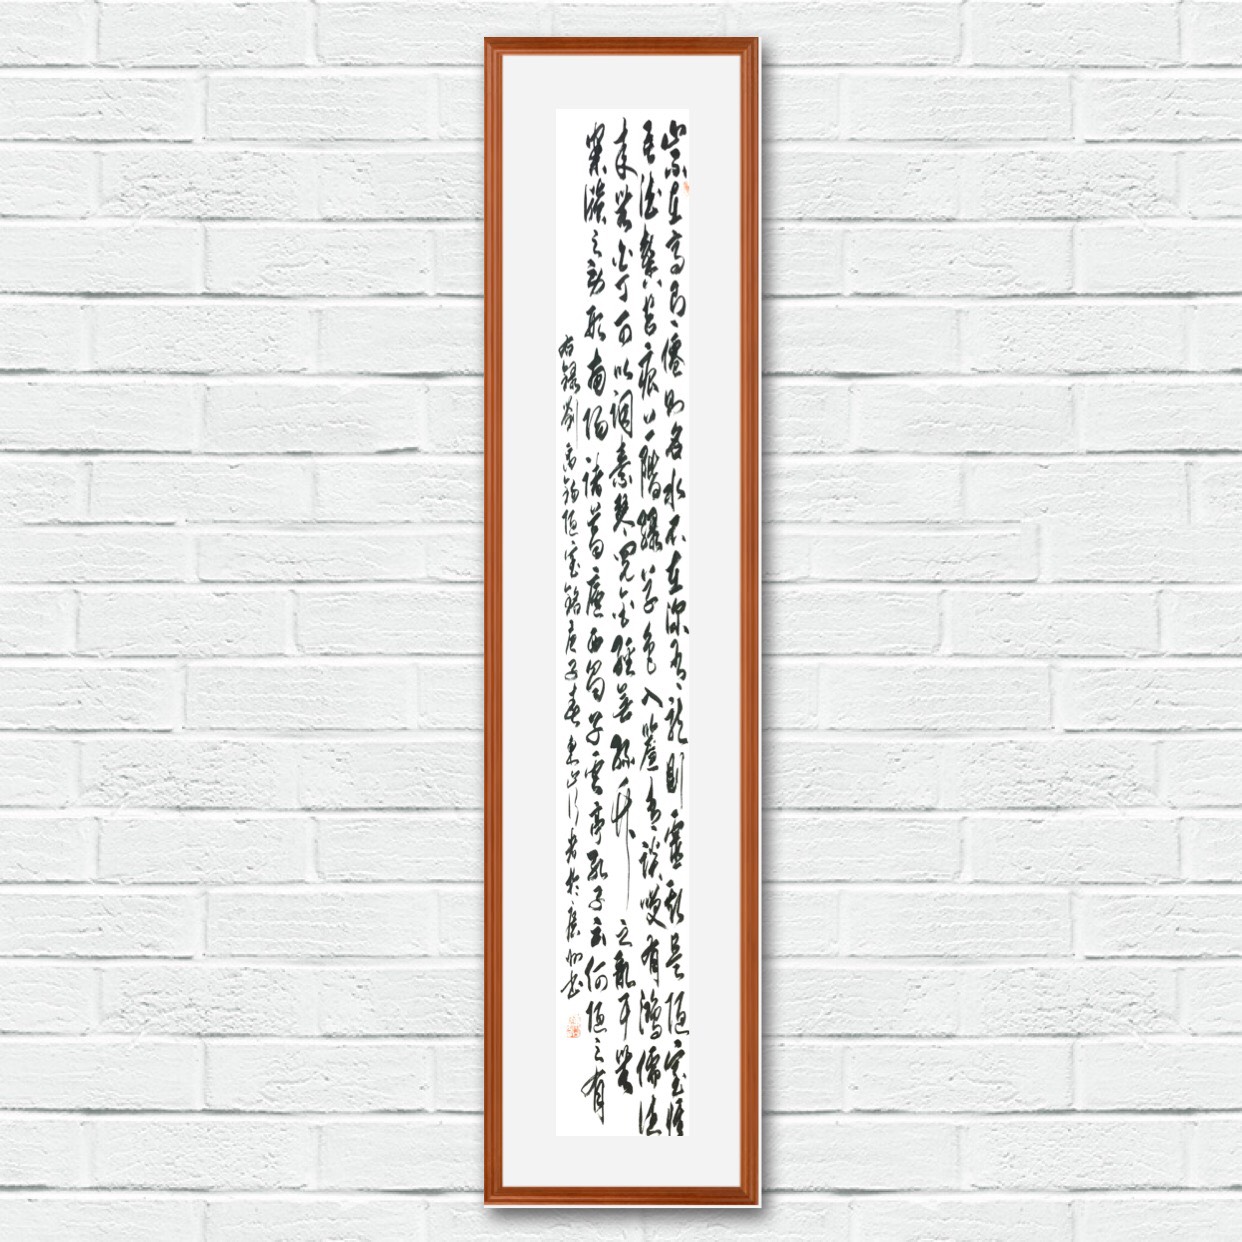 山不在高有僊則名水不在深有龍則靈斯是陋室惟
吾德馨苔痕上階綠草色入簾青談笑有鴻儒往
来無白丁可以調素琴閱金經無絲竹之亂耳無
案牘之勞形南陽諸葛廬西蜀子雲亭孔子云何陋之有
右録劉禹錫陋室銘庚子春東山行者於廣州書